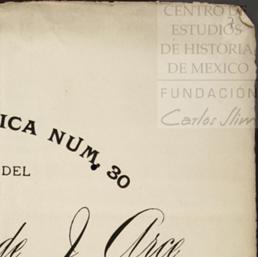 CENTRO DE
ESTUDIOS
DE HISTORIA
DE MEXICO
FUNDACIÓN
Carlos Slim
ICA NUM. 30
DEL
de J. Arce